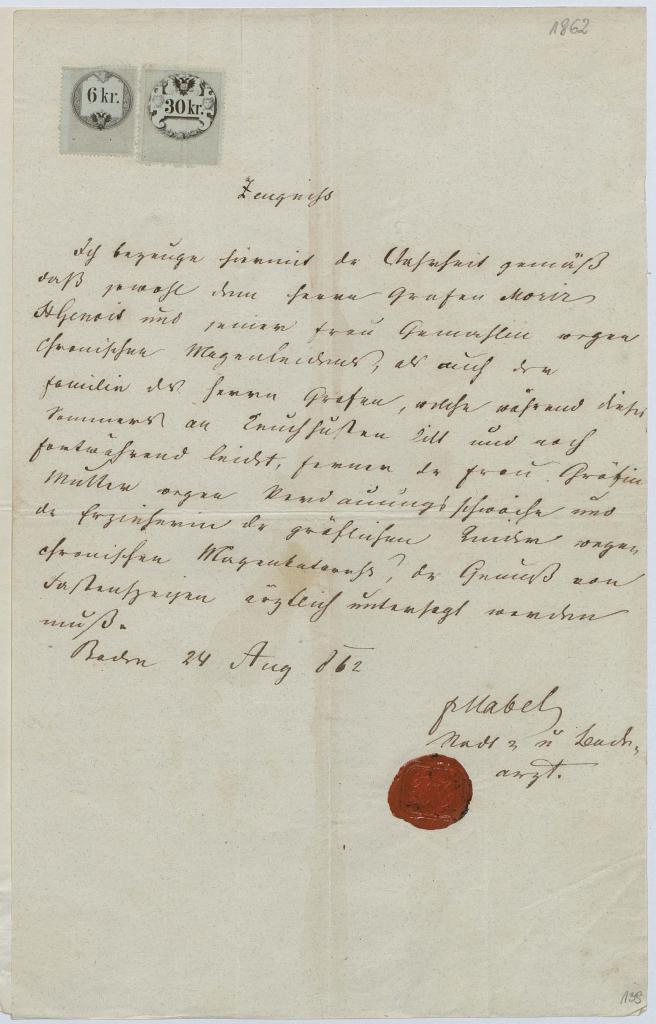 1862
6 kr.
30 kr.
Zeugniß
Ich bezeuge hiermit der Wahrheit gemäß
daß sowohl dem Herrn Grafen Moriz
St Genois und seiner Frau Gemahlin wegen
chronischen Magenleidens, als auch der
Familie des Herrn Grafen, welche während dieses
Sommers an Keuchhusten litt und noch
fortwährend leidet, ferner der Frau Gräfin
Mutter wegen Verdauungsschwäche und
der Erzieherin der gräflichen Kinder wegen
chronischen Magenkatarrhs, der Genuß von
Fastenspeisen ärztlich untersagt werden
muß.
Baden 24 Aug 862
Habel
Stadt- u Bade-
arzt.
198